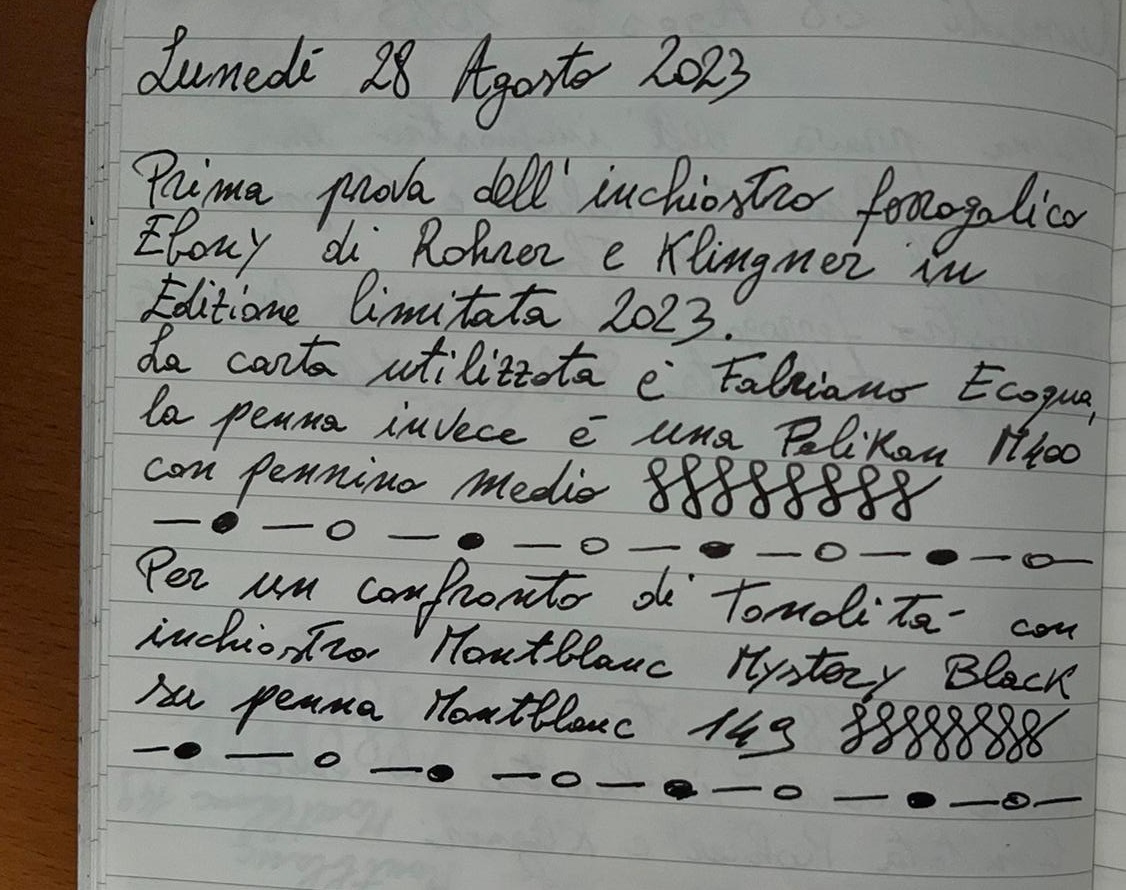 Lunedì 28 Agosto 2023
Prima prova dell'inchiostro ferrogalico
Ebony di Rohrer e Klingner in
Edizione limitata 2023.
La carta utilizzata è Fabriano Ecoqua,
la penna invece è una Pelikan M400
con pennino medio
Per un confronto di tonalità con
inchiostro Montblanc Mystery Black
su penna Montblanc 149